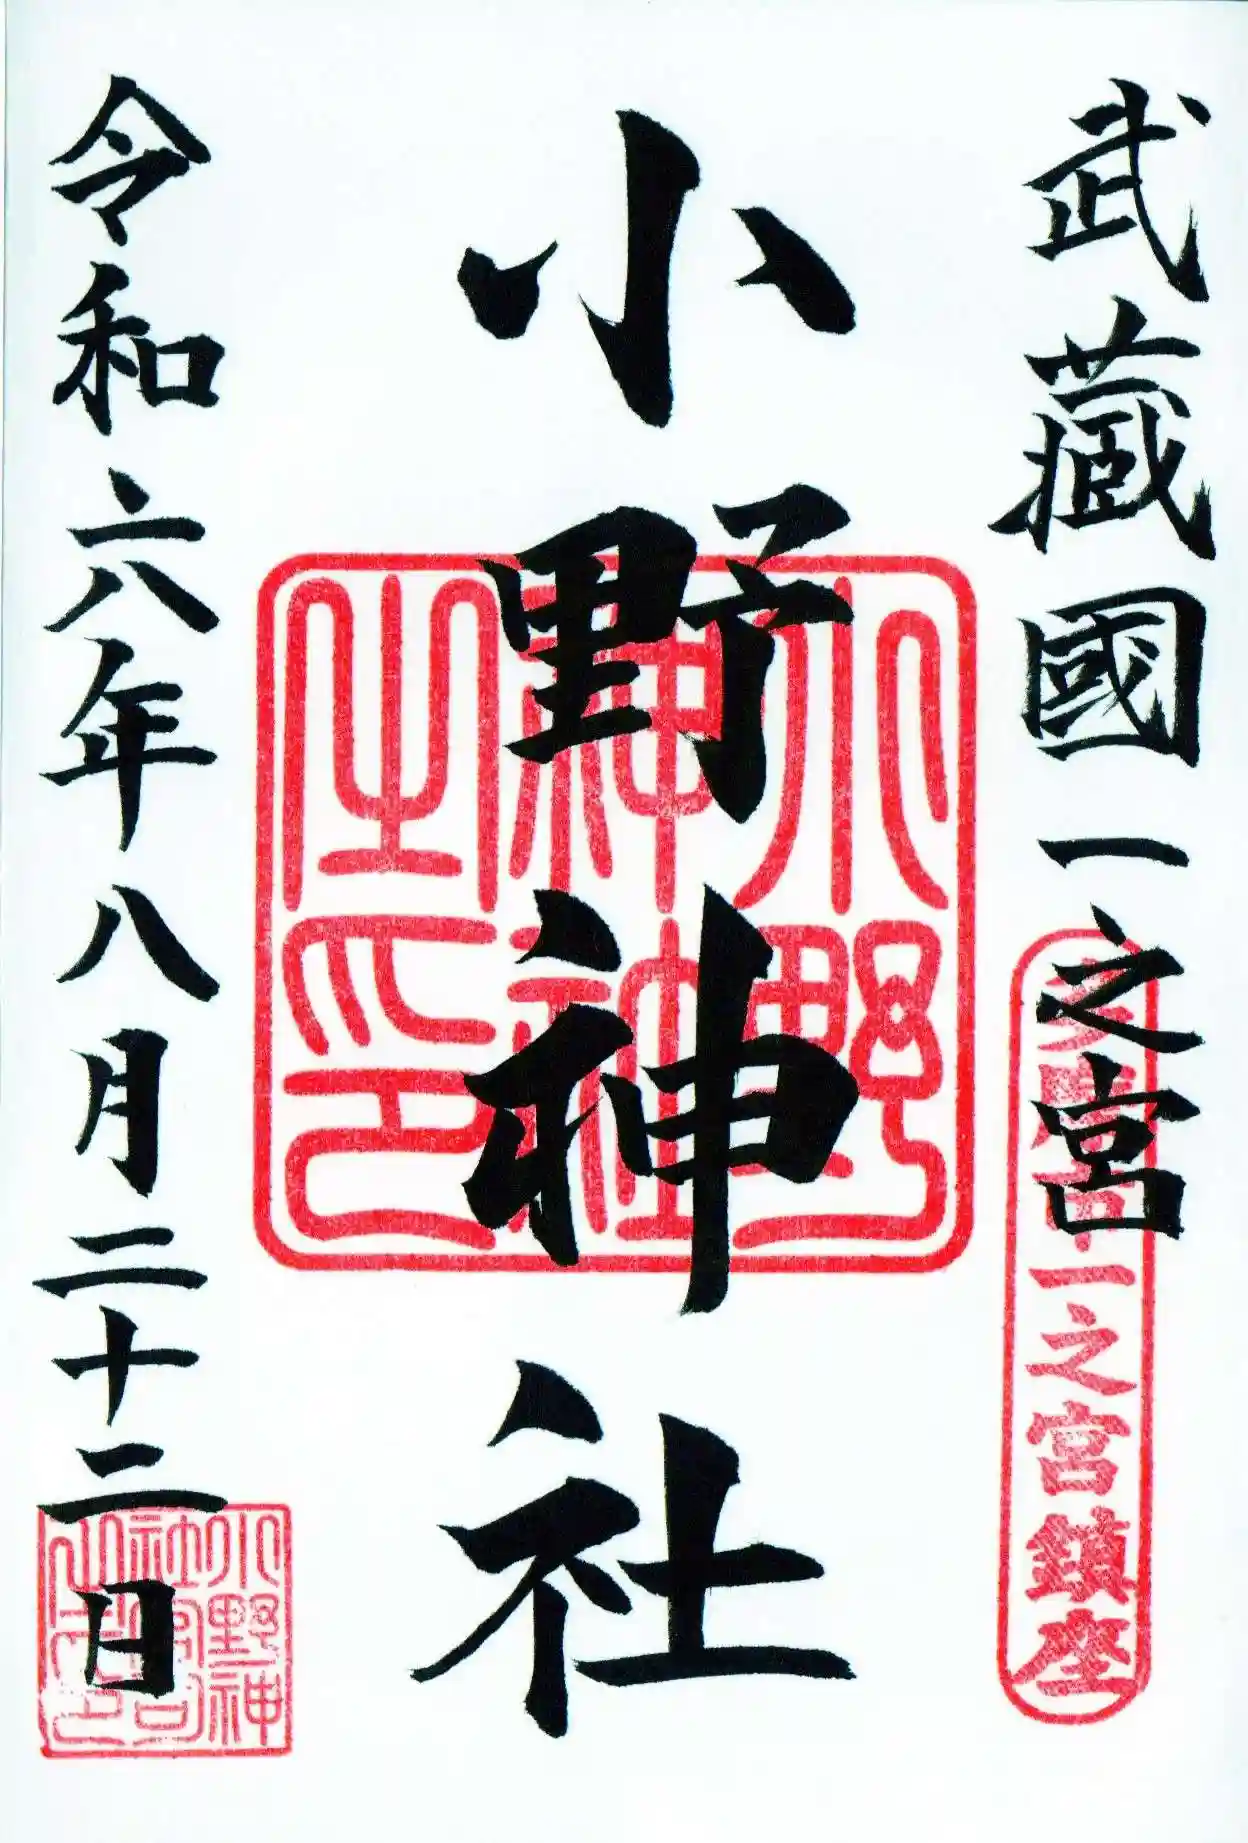 武藏國一之宮
一之宮鎮座
小野神社
小野神社之印
令和六年八月二十二日
小野神社宮司之印